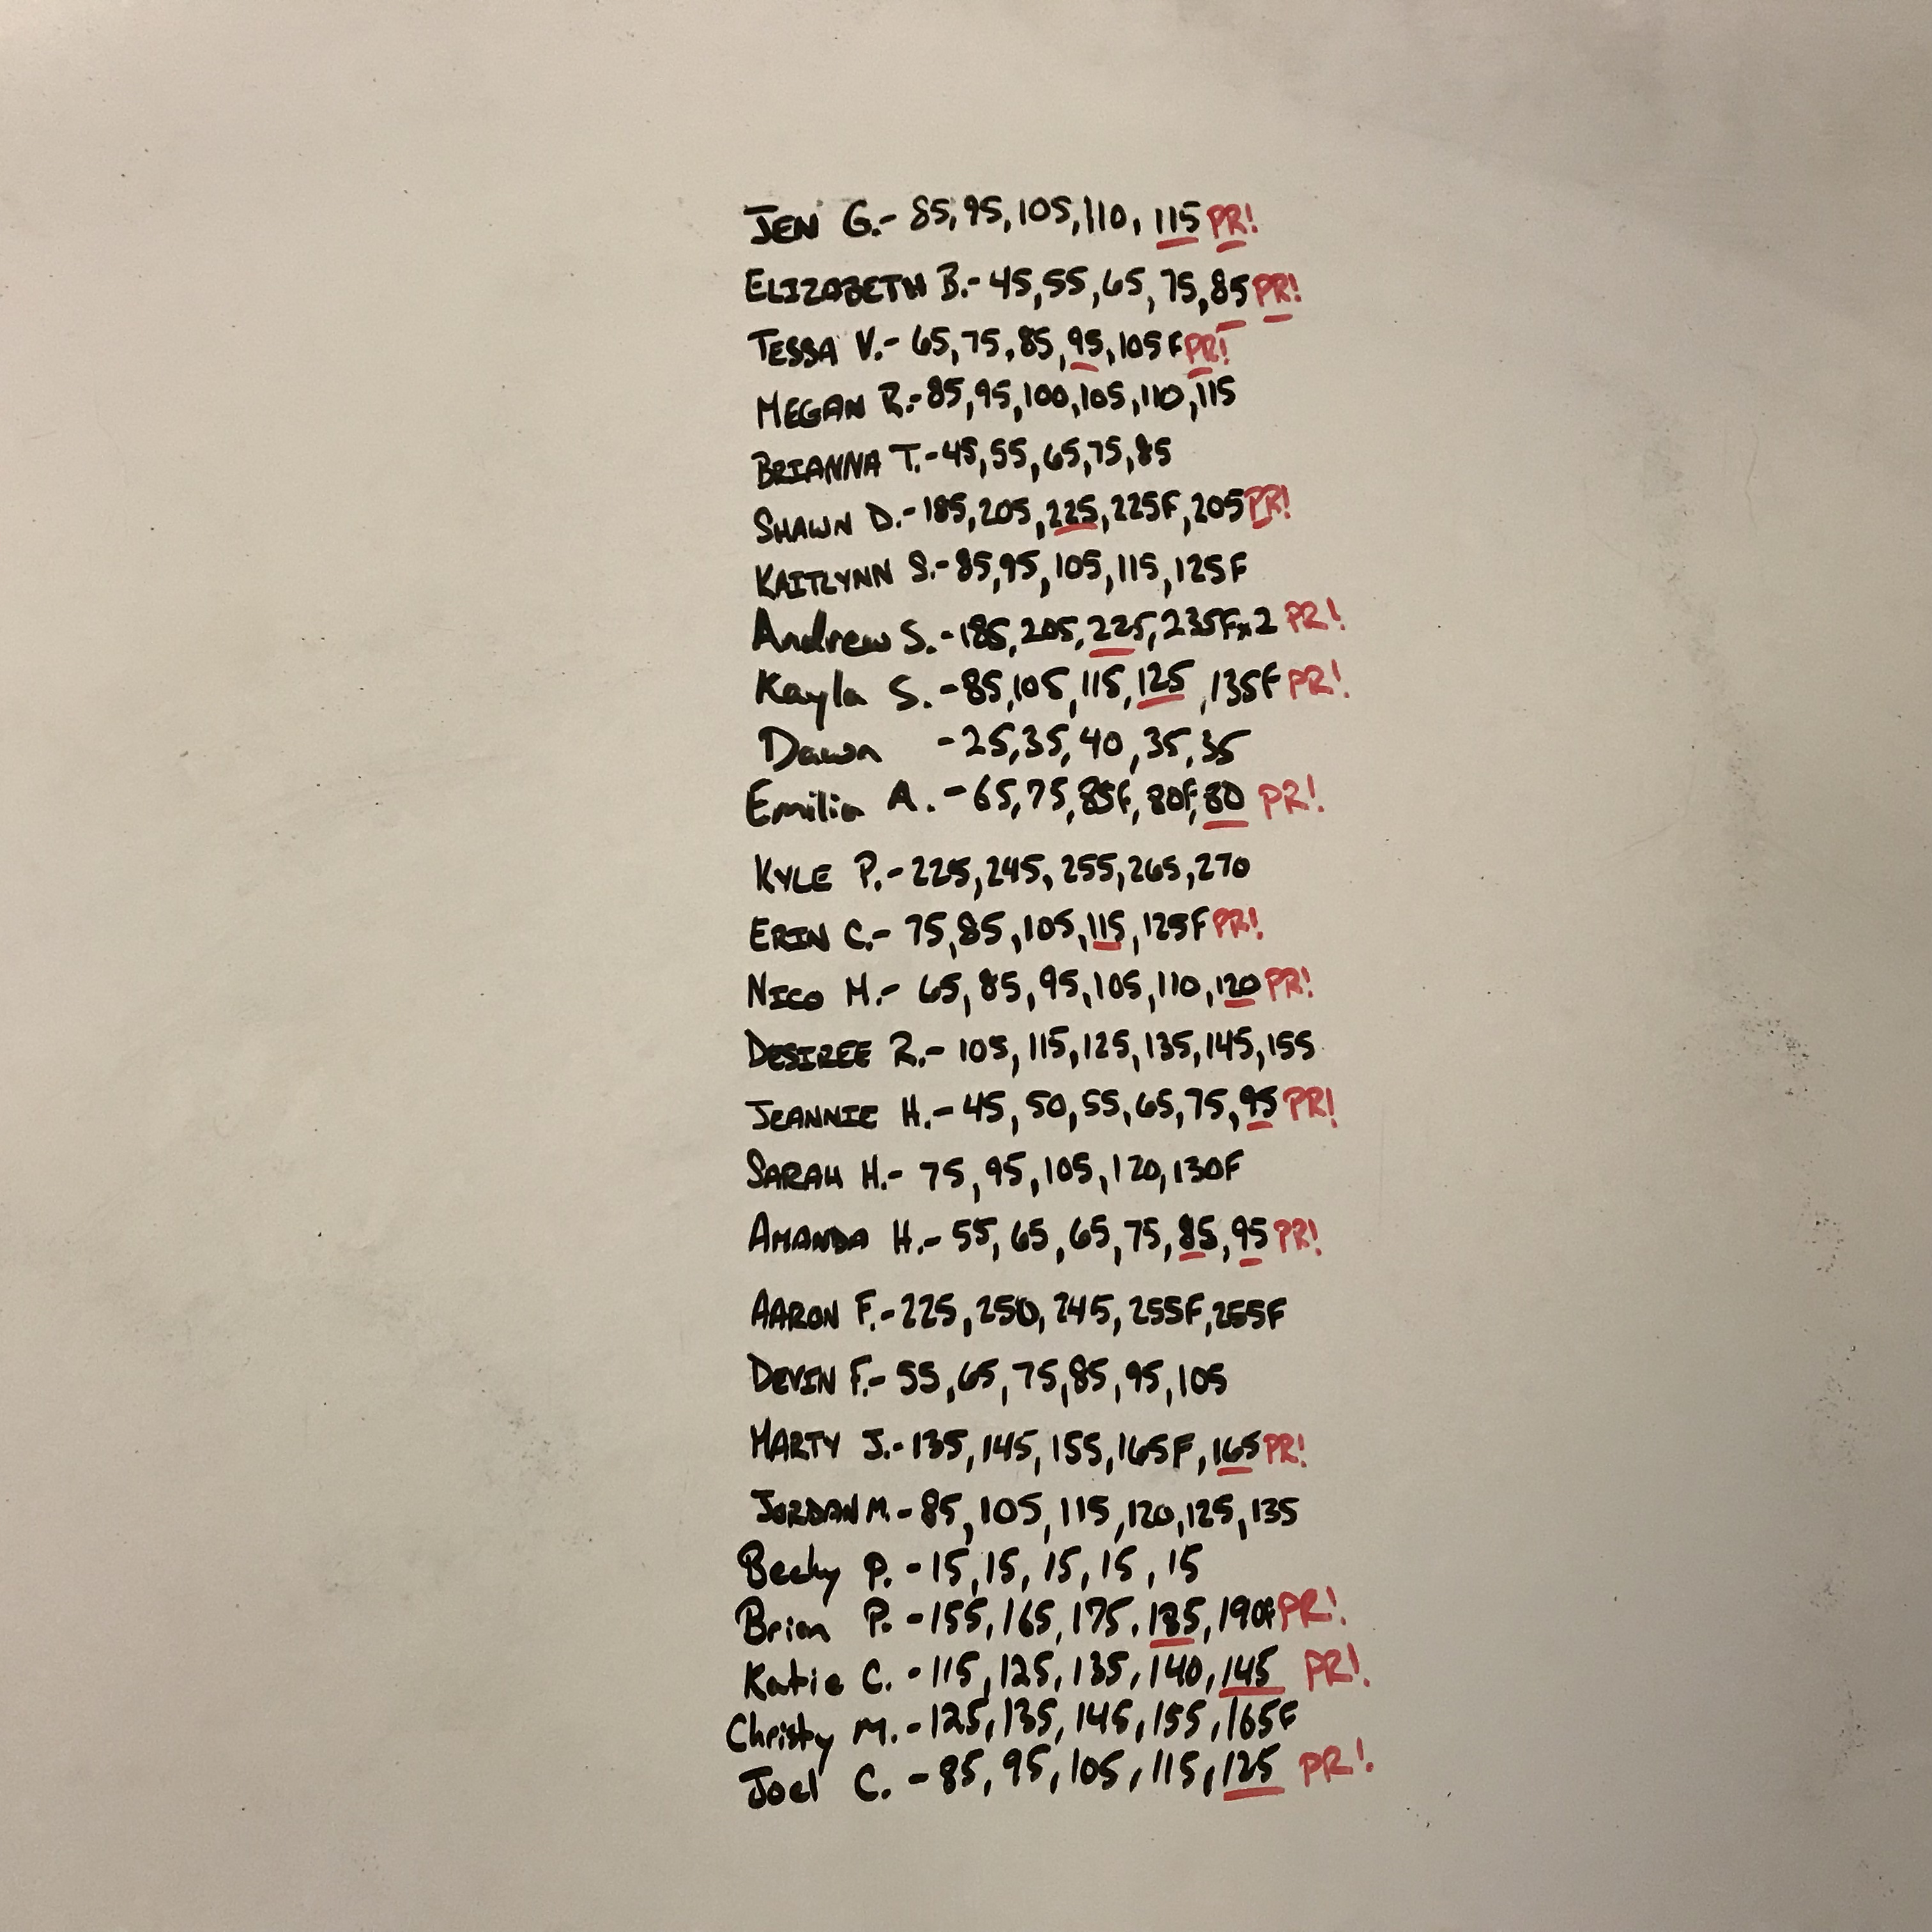 JEN G.- 85, 95, 105, 110, 115 PR!
ELIZABETH B.- 45, 55, 65, 75, 85 PR!
TESSA V.- 65, 75, 85, 95, 105F PR!
MEGAN R.- 85, 95, 100, 105, 110, 115
BRIANNA T.- 45, 55, 65, 75, 85
SHAWN D.- 185, 205, 225, 225F, 205 PR!
KAITLYNN S.- 85, 95, 105, 115, 125F
Andrew S. - 185, 205, 225, 235Fx2 PR!
Kayla S. - 85, 105, 115, 125, 135F PR!
Dawn - 25, 35, 40, 35, 35
Emilia A. - 65, 75, 85F, 80F, 80 PR!
KYLE P.- 225, 245, 255, 265, 270
ERIN C.- 75, 85, 105, 115, 125F PR!
NICO M.- 65, 85, 95, 105, 110, 120 PR!
DESIREE R.- 105, 115, 125, 135, 145, 155
JEANNIE H.- 45, 50, 55, 65, 75, 95 PR!
SARAH H.- 75, 95, 105, 120, 130F
AMANDA H.- 55, 65, 65, 75, 85, 95 PR!
AARON F.- 225, 250, 245, 255F, 255F
DEVIN F.- 55, 65, 75, 85, 95, 105
MARTY J.- 135, 145, 155, 165F, 165 PR!
JORDAN M. - 85, 105, 115, 120, 125, 135
Becky P. - 15, 15, 15, 15, 15
Brian P. - 155, 165, 175, 185, 190F PR!
Katie C. - 115, 125, 135, 140, 145 PR!
Christy M. - 125, 135, 145, 155, 165F
Joel C. - 85, 95, 105, 115, 125 PR!